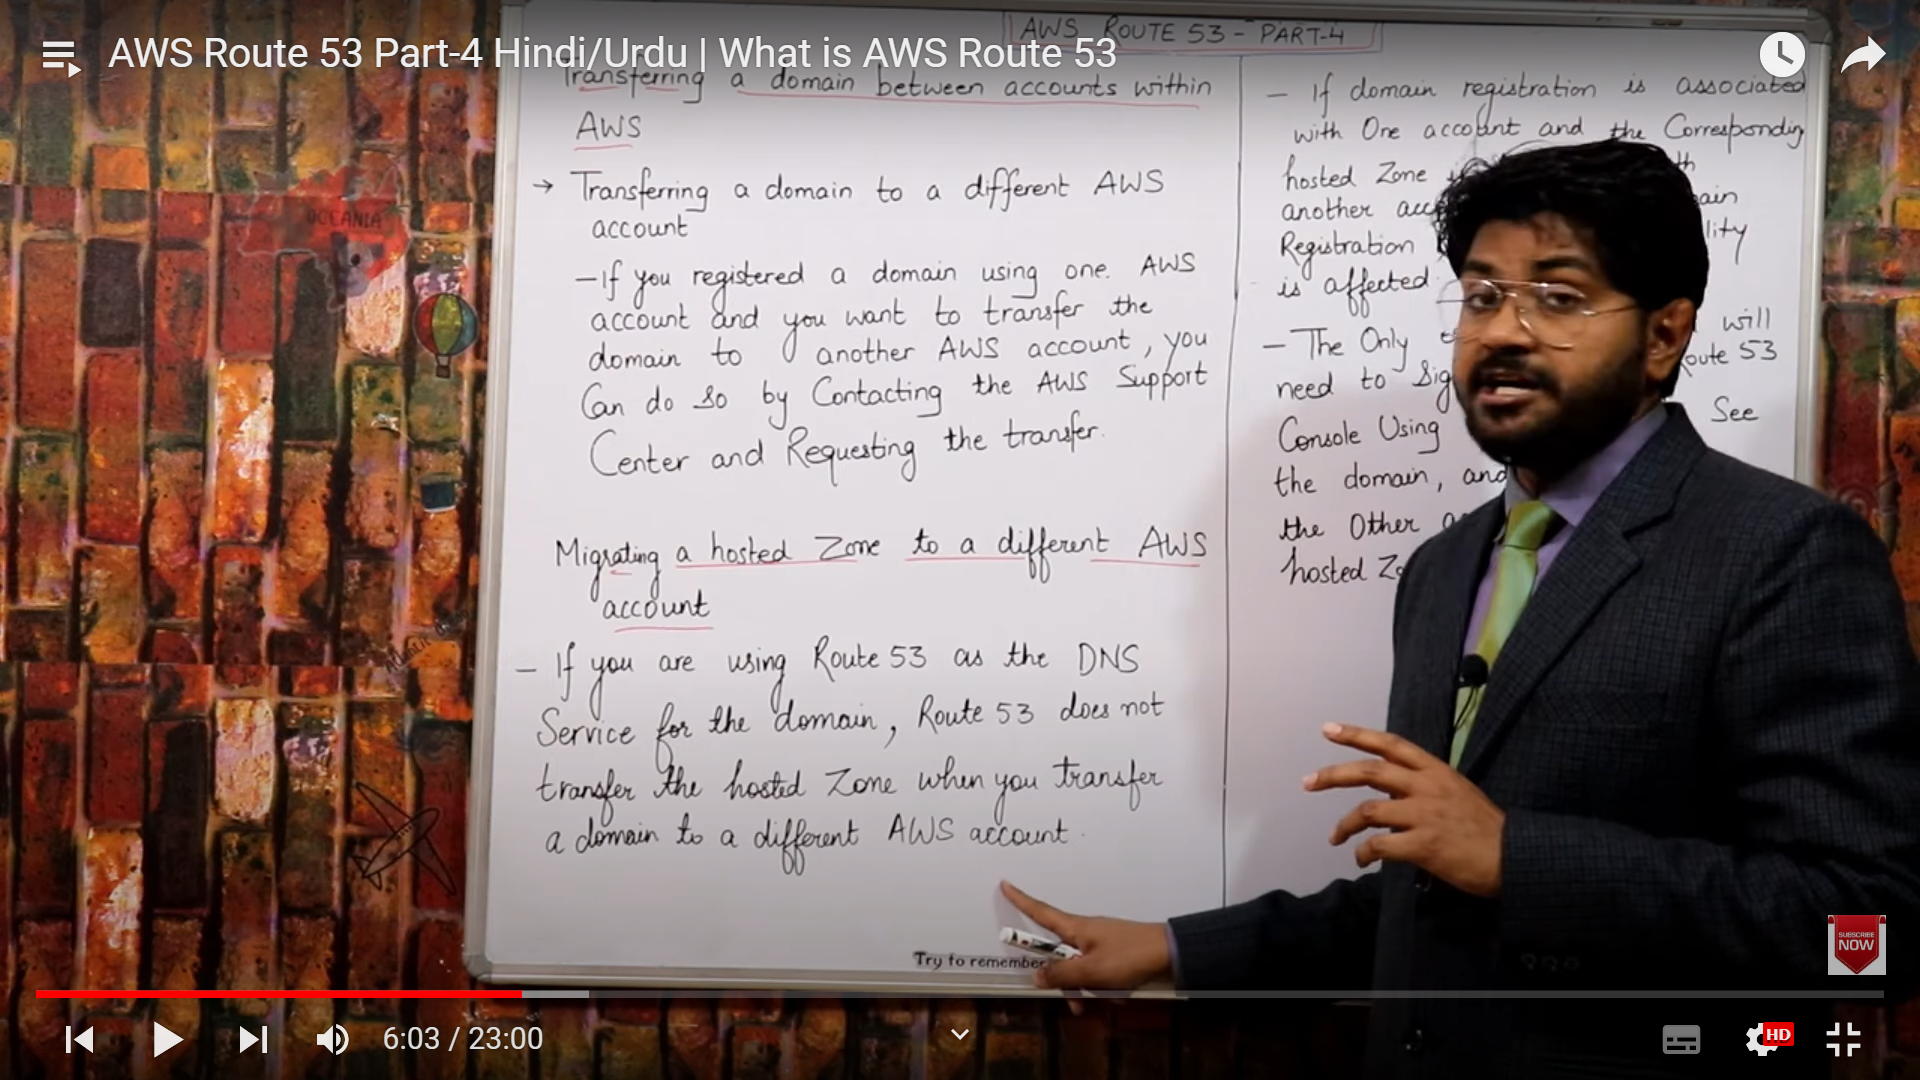 AWS Route 53 Part-4 Hindi/Urdu | What is AWS Route 53
AWS ROUTE 53 - PART-4
Transferring a domain between accounts within
AWS
→ Transferring a domain to a different AWS
account
- If you registered a domain using one AWS
account and you want to transfer the
domain to another AWS account, you
Can do so by Contacting the AWS Support
Center and Requesting the transfer.
Migrating a hosted Zone to a different AWS
account
- If you are using Route 53 as the DNS
Service for the domain, Route 53 does not
transfer the hosted Zone when you transfer
a domain to a different AWS account.
Try to remember
- If domain registration is associated
with One account and the Corresponding
hosted Zone
another
Registration
is affected
- The Only will
need to
Console Using See
the domain, and
the Other
hosted
OCEANIA
SUBSCRIBE
NOW
6:03 / 23:00
HD